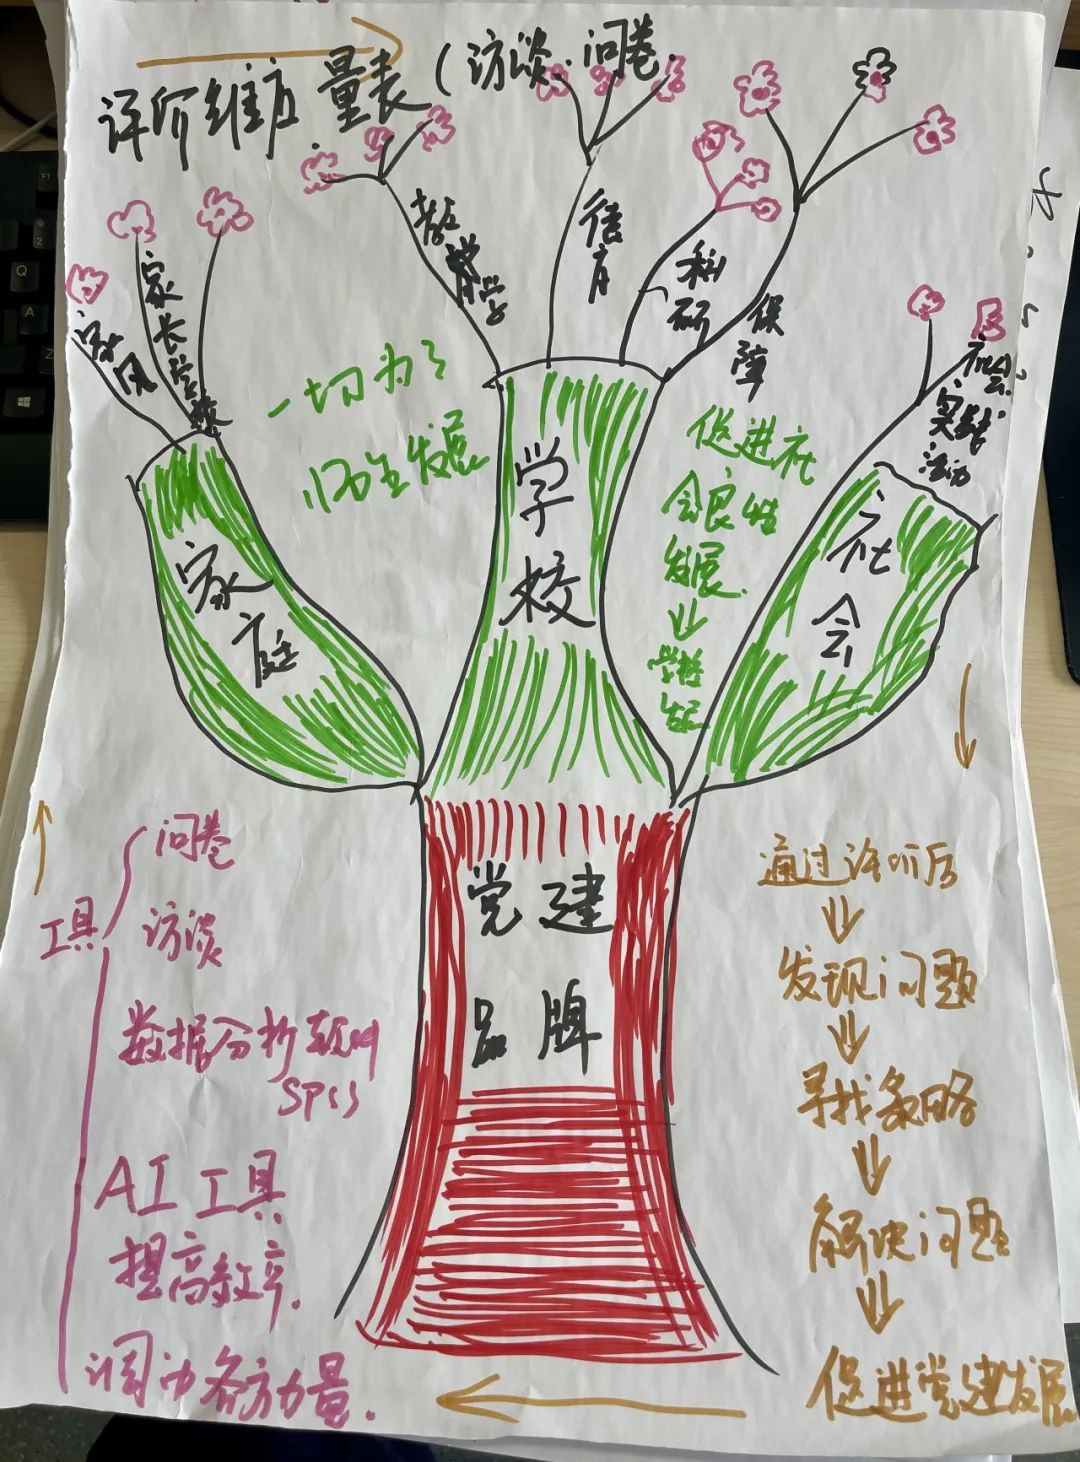 评价维度.量表(访谈.问卷
家风
家长学校
教育学
德育
科研
保障
社会
实践
活动
一切为了
师生发展
促进社
会良性
发展.
家庭
学校
社会
党建
品牌
工具
问卷
访谈
数据分析软件
SPSS
AI工具
提高效率.
调动各方力量.
发现问题
寻找策略
解决问题
促进党建发展